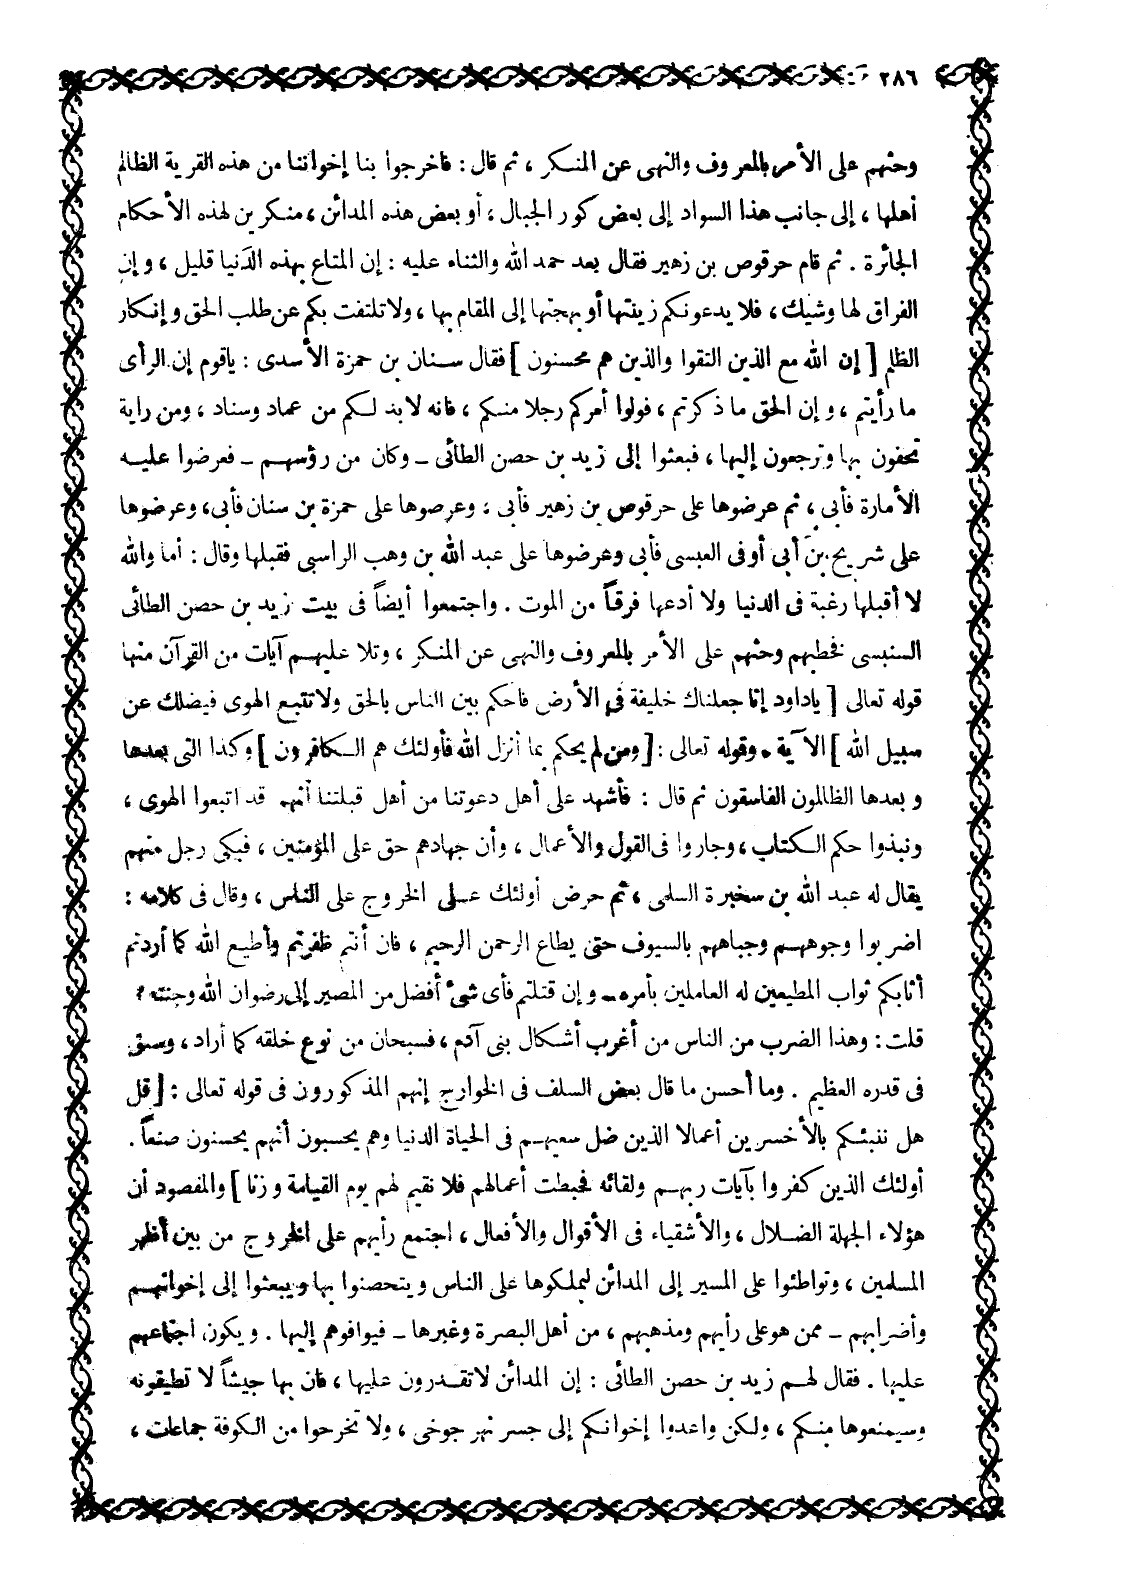 ٢٨٦
وحثهم على الأمر بالمعروف والنهى عن المنكر ، ثم قال : فاخرجوا بنا إخواننا من هذه القرية الظالم
أهلها ، إلى جانب هذا السواد إلى بعض كور الجبال ، أو بعض هذه المدائن ، منكرين لهذه الأحكام
الجائرة . ثم قام حرقوص بن زهير فقال بعد حمد الله والثناء عليه : إن المتاع بهذه الدنيا قليل ، وإن
الفراق لها وشيك ، فلا يدعونكم زينتها أو بهجتها إلى المقام بها ، ولا تلتفت بكم عن طلب الحق وإنكار
الظلم [ إن الله مع الذين اتقوا والذين هم محسنون ] فقال سنان بن حمزة الأسدى : ياقوم إن الرأى
ما رأيتم ، وإن الحق ما ذكرتم ، فولوا أمركم رجلا منكم ، فانه لابد لكم من عماد وسناد ، ومن راية
تحفون بها وترجعون إليها ، فبعثوا إلى زيد بن حصن الطائى ـ وكان من رؤسهم ـ فعرضوا عليه
الأمارة فأبى ، ثم عرضوها على حرقوص بن زهير فأبى ، وعرصوها على حمزة بن سنان فأبى ، وعرضوها
على شريح بن أبى أوفى العبسى فأبى وعرضوها على عبد الله بن وهب الراسبى فقبلها وقال : أما والله
لا أقبلها رغبة فى الدنيا ولا أدعها فرقاً من الموت . واجتمعوا أيضاً فى بيت زيد بن حصن الطائى
السنبسى فخطبهم وحثهم على الأمر بالمعروف والنهى عن المنكر ، وتلا عليهم آيات من القرآن منها
قوله تعالى [ ياداود إنا جعلناك خليفة فى الأرض فاحكم بين الناس بالحق ولا تتبع الهوى فيضلك عن
سبيل الله ] الآية . وقوله تعالى : [ ومن لم يحكم بما أنزل الله فأولئك هم الكافرون ] وكذا التى بعدها
وبعدها الظالمون الفاسقون ثم قال : فأشهد على أهل دعوتنا من أهل قبلتنا أنهم قد اتبعوا الهوى ،
ونبذوا حكم الكتاب ، وجاروا فى القول والأعمال ، وأن جهادهم حق على المؤمنين ، فبكى رجل منهم
يقال له عبد الله بن سخبرة السلمى ، ثم حرض أولئك على الخروج على الناس ، وقال فى كلامه :
اضربوا وجوههم وجباههم بالسيوف حتى يطاع الرحمن الرحيم ، فان أنتم ظفرتم وأطيع الله كما أردتم
أثابكم ثواب المطيعين له العاملين بأمره ـ وإن قتلتم فأى شئ أفضل من المصير إلى رضوان الله وجنته ؟
قلت : وهذا الضرب من الناس من أغرب أشكال بنى آدم ، فسبحان من نوع خلقه كما أراد ، وسبق
فى قدره العظيم . وما أحسن ما قال بعض السلف فى الخوارج إنهم المذكورون فى قوله تعالى : [ قل
هل ننبئكم بالأخسرين أعمالا الذين ضل سعيهم فى الحياة الدنيا وهم يحسبون أنهم يحسنون صنعاً .
أولئك الذين كفروا بآيات ربهم ولقائه فحبطت أعمالهم فلا نقيم لهم يوم القيامة وزنا ] والمقصود أن
هؤلاء الجهلة الضلال ، والأشقياء فى الأقوال والأفعال ، اجتمع رأيهم على الخروج من بين أظهر
المسلمين ، وتواطئوا على المسير إلى المدائن ليملكوها على الناس ويتحصنوا بها ويبعثوا إلى إخوانهم
وأضرابهم ـ ممن هو على رأيهم ومذهبهم ، من أهل البصرة وغيرها ـ فيوافوهم إليها . ويكون اجتماعهم
عليها . فقال لهم زيد بن حصن الطائى : إن المدائن لا تقدرون عليها ، فان بها جيشاً لا تطيقونه
وسيمنعوها منكم ، ولكن واعدوا إخوانكم إلى جسر نهر جوخى ، ولا تخرجوا من الكوفة جماعات ،